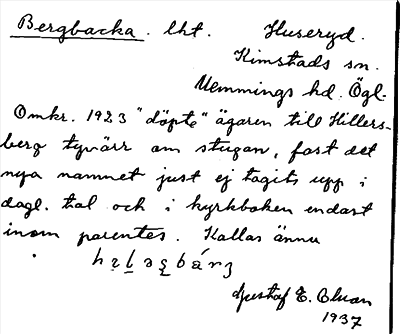 Bergbacka. lht. Huseryd.
Kimstads sn.
Memmings hd. Ögl.
Omkr. 1923 "döpte" ägaren till Hillers-
berg tyvärr om stugan, fast det
nya namnet just ej tagits upp i
dagl. tal och i kyrkboken endast
inom parentes. Kallas ännu
Gustaf E. Olson
1937